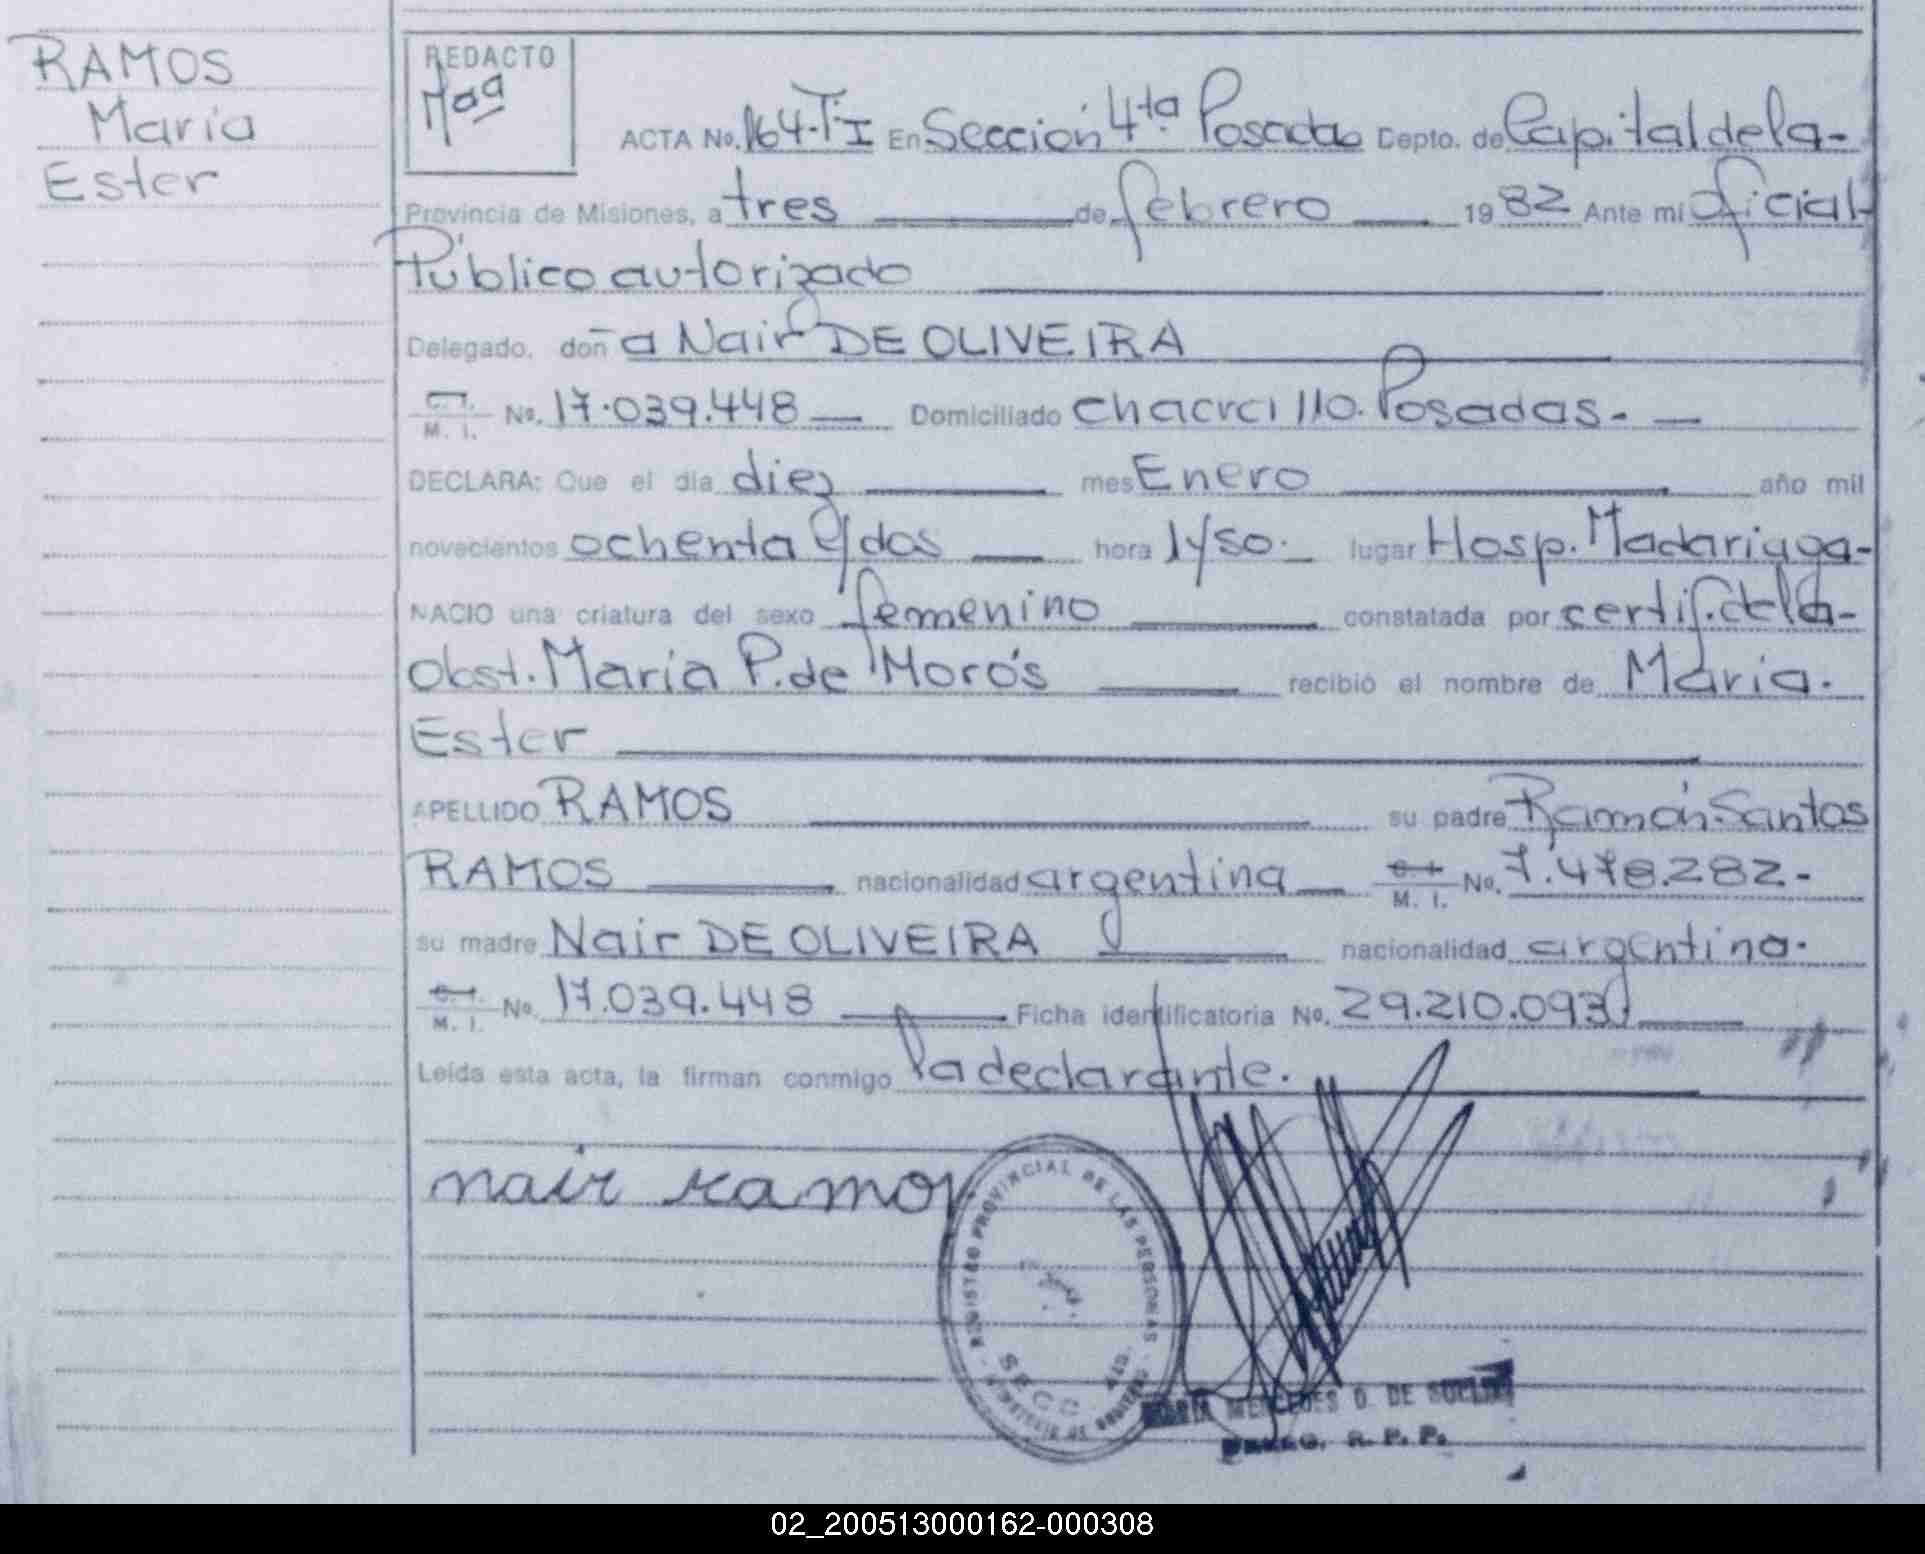 RAMOS
María
Ester
REDACTO
ACTA No. 164-TºI En Sección 4ta Posadas Depto. de Capital de la-
Provincia de Misiones, a tres de febrero 1982 Ante mi oficial-
Público autorizado
Delegado, doña Nair DE OLIVEIRA
C. I. M. I. No. 17.039.448 Domiciliado chacra 110. Posadas.-
DECLARA: Que el día diez mes Enero año mil
novecientos ochenta y dos hora 1y50. lugar Hosp. Madariaga-
NACIO una criatura del sexo femenino constatada por certif. de la-
obst. María P. de Morós recibió el nombre de María.
Ester
APELLIDO RAMOS su padre Ramón Santos
RAMOS nacionalidad argentina C. I. M. I. No. 7.478.282-
su madre Nair DE OLIVEIRA nacionalidad argentina.
C. I. M. I. No. 17.039.448 Ficha identificatoria No. 29.210.093
Leída esta acta, la firman conmigo la declarante.
nair ramos
REGISTRO PROVINCIAL DE LAS PERSONAS
SECC 4ta.
MINISTERIO DE GOBIERNO
MARIA MERCEDES O. DE
DELEG. R. P. P.
02_200513000162-000308